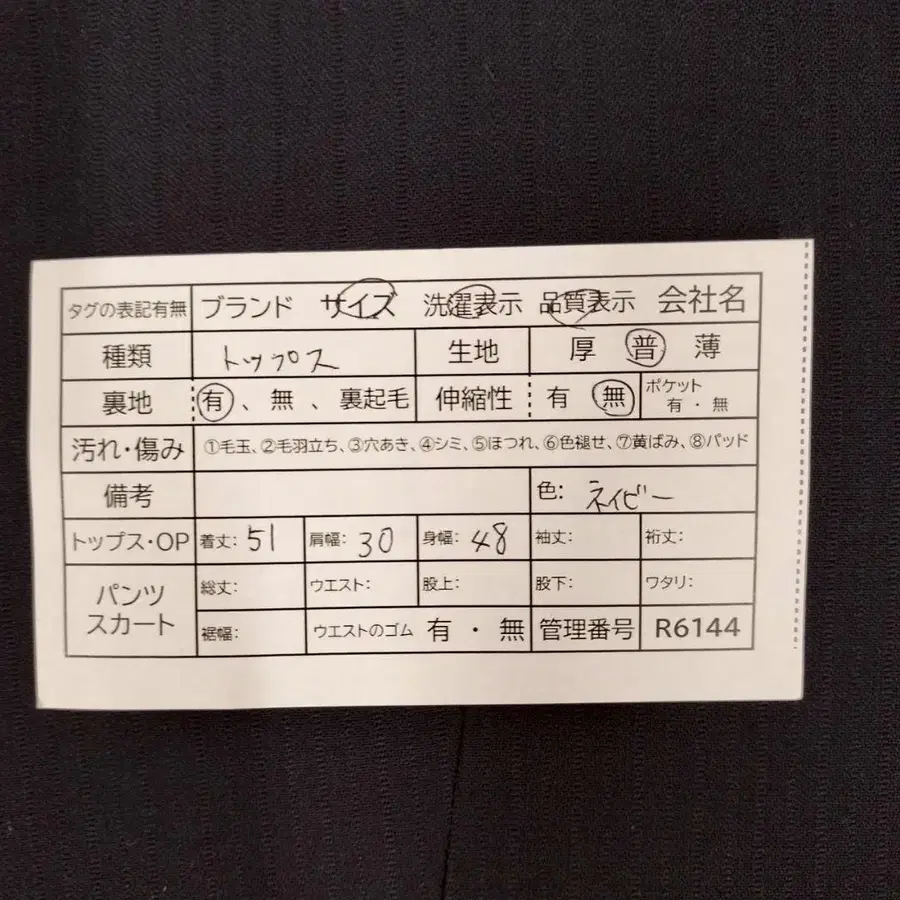 タグの表記有無 ブランド サイズ 洗濯表示 品質表示 会社名
種類 トップス 生地 厚 普 薄
裏地 有、無、裏起毛 伸縮性 有 無 ポケット 有・無
汚れ・傷み ①毛玉、②毛羽立ち、③穴あき、④シミ、⑤ほつれ、⑥色褪せ、⑦黄ばみ、⑧パッド
備考 色: ネイビー
トップス・OP 着丈: 51 肩幅: 30 身幅: 48 袖丈: 裄丈:
パンツ スカート 総丈: ウエスト: 股上: 股下: ワタリ:
裾幅: ウエストのゴム 有・無 管理番号 R6144